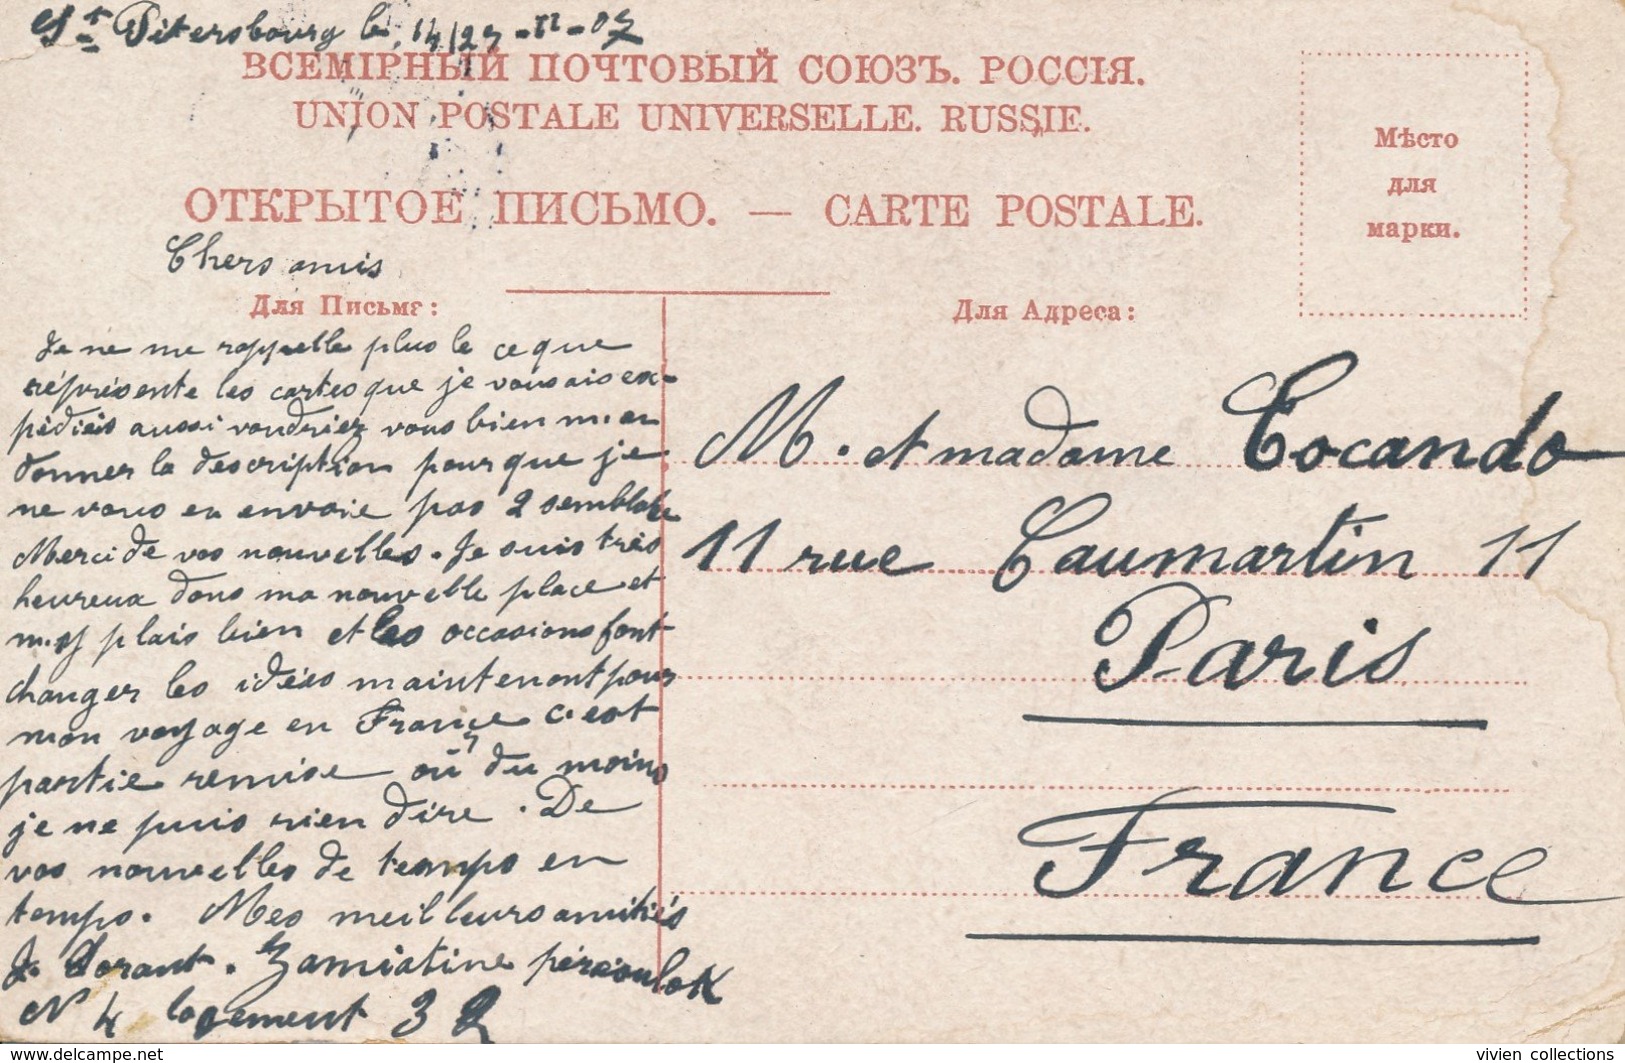 St Pétersbourg le 14/27-II-07
ВСЕМІРНЫЙ ПОЧТОВЫЙ СОЮЗЪ. РОССІЯ.
UNION POSTALE UNIVERSELLE. RUSSIE.
ОТКРЫТОЕ ПИСЬМО. — CARTE POSTALE.
Мѣсто
для
марки.
Chers amis
Для Письма:
Je ne me rappelle plus le ce que
réprésente les cartes que je vous ais ex-
pédiéis aussi voudriez vous bien m'en
donner la description pour que je
ne vous en envoie pas 2 semblable
Merci de vos nouvelles. Je suis très
heureux dans ma nouvelle place et
m'y plais bien et les occasions font
changer les idées maintenant pour
mon voyage en France c'est
partie remise où du moins
je ne puis rien dire. De
vos nouvelles de temps en
temps. Mes meilleurs amitiés
J. Dorant. Zamiatine péréoulok
N 4 logement 32
Для Адреса:
M. et madame Cocando
11 rue Caumartin 11
Paris
France
vivien collections